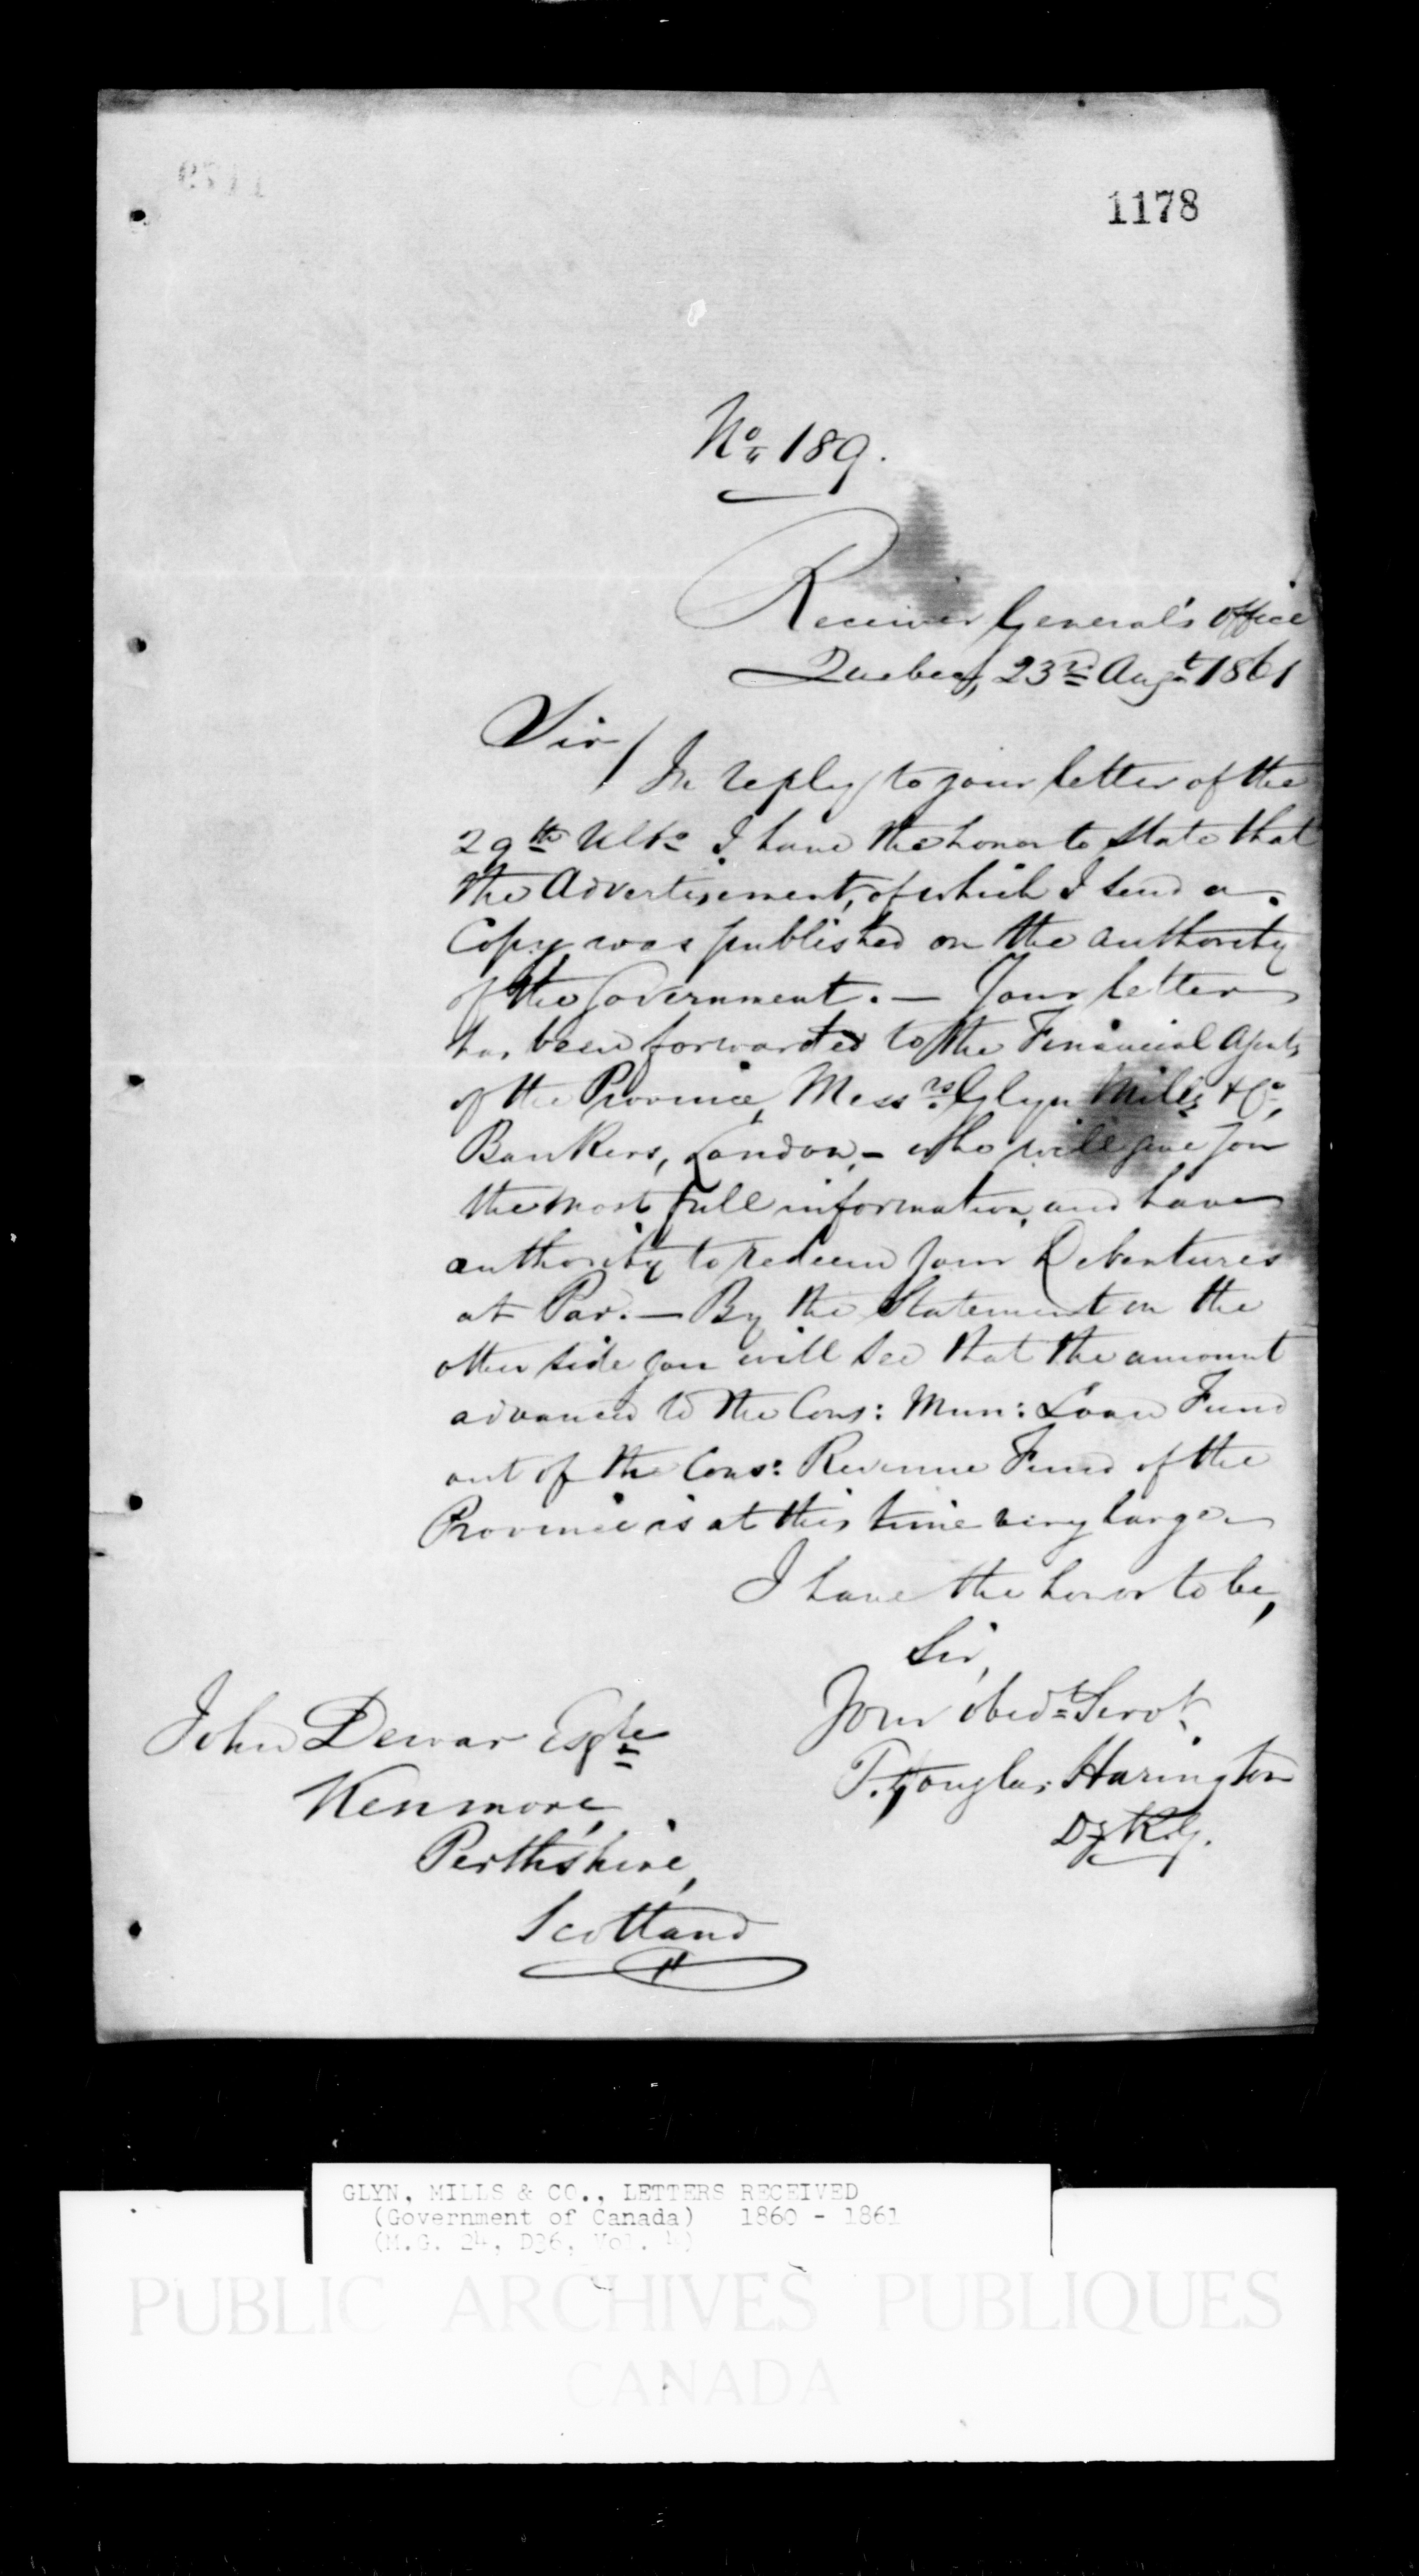 1178
No 189.
Receiver General's Office
Quebec, 23rd Augt 1861
Sir/
In reply to your letter of the
29th Ulto I have the honor to state that
the Advertisement, of which I send a
Copy was published on the authority
of the Government. — Your letter
has been forwarded to the Financial Agents
of the Province, Messrs Glyn Mills & Co,
Bankers, London, — who will give you
the most full information, and have
authority to redeem your Debentures
at Par. — By the Statement on the
other side you will see that the amount
advanced to the Cons: Mun: Loan Fund
out of the Cons: Revenue Fund of the
Province is at this time very large.
I have the honor to be,
Sir,
Your obedt Servt
T. Douglas Harington
Dy R. G.
John Dewar Esqre
Kenmore,
Perthshire,
Scotland
GLYN, MILLS & CO., LETTERS RECEIVED
(Government of Canada) 1860 - 1861
(M.G. 24, D36, Vol. 4)
PUBLIC ARCHIVES PUBLIQUES
CANADA